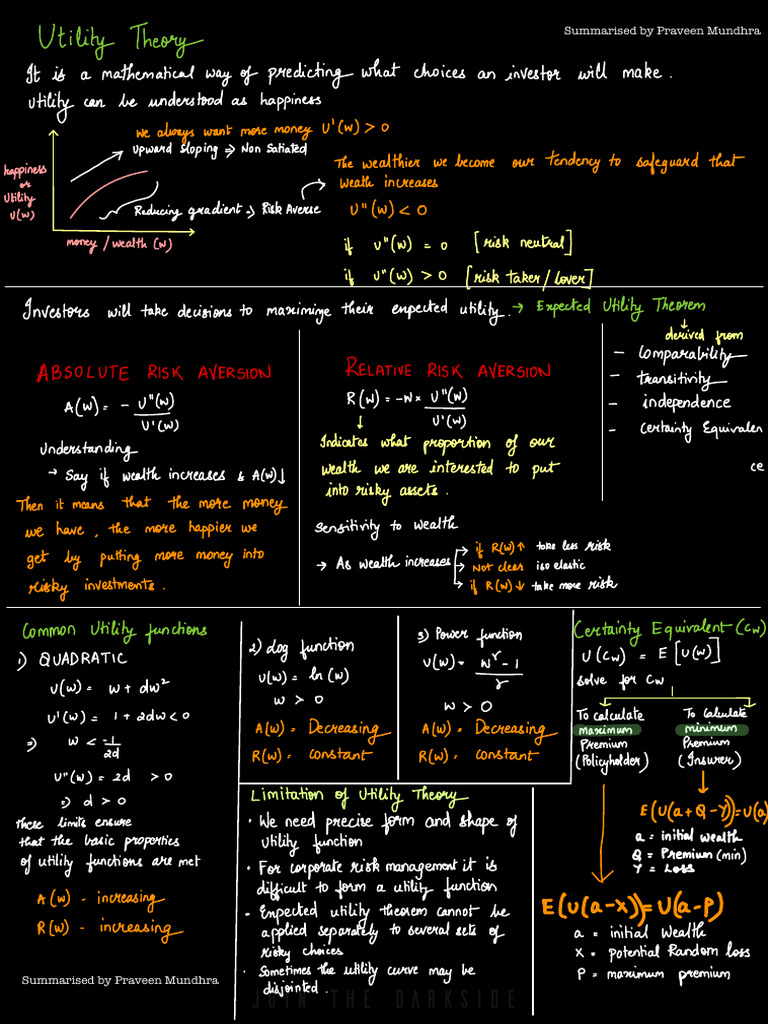 Utility Theory
Summarised by Praveen Mundhra
It is a mathematical way of predicting what choices an investor will make.
Utility can be understood as happiness
We always want more money U'(w) > 0
Upward sloping ⇒ Non Satiated
happiness
or
Utility
U(w)
Reducing gradient → Risk Averse
money / wealth (w)
The wealthier we become our tendency to safeguard that
weath increases
U"(w) < 0
if U"(w) = 0 [risk neutral]
if U"(w) > 0 [risk taker/lover]
Investors will take decisions to maximize their expected utility. → Expected Utility Theorem
derived from
– Comparability
– transitivity
– independence
– Certainty Equivalen
ce
ABSOLUTE RISK AVERSION
A(w) = - U"(w)
U'(w)
Understanding
→ Say if wealth increases & A(w)↓
Then it means that the more money
we have, the more happier we
get by putting more money into
risky investments.
RELATIVE RISK AVERSION
R(w) = -w × U"(w)
U'(w)
Indicates what proportion of our
wealth we are interested to put
into risky assets.
Sensitivity to wealth
→ As wealth increases
if R(w)↑ take less risk
Not clear iso elastic
if R(w)↓ take more risk
Common Utility functions
1) QUADRATIC
U(w) = w + dw²
U'(w) = 1 + 2dw < 0
⇒ w < -1
2d
U"(w) = 2d > 0
⇒ d > 0
these limits ensure
that the basic properties
of utility functions are met
A(w) - increasing
R(w) - increasing
2) log function
U(w) = ln(w)
w > 0
A(w) = Decreasing
R(w) = constant
3) Power function
U(w) = w^γ - 1
γ
w > 0
A(w) = Decreasing
R(w) = constant
Certainty Equivalent (Cw)
U(Cw) = E[U(w)]
solve for Cw
To calculate
maximum
Premium
(Policyholder)
To calculate
minimum
Premium
(Insurer)
E(U(a+Q-Y))=U(a)
a = initial wealth
Q = Premium (min)
Y = Loss
E(U(a-x))=U(a-P)
a = initial wealth
X = potential Random loss
P = maximum premium
Limitation of Utility Theory
• We need precise form and shape of
utility function
• For corporate risk management it is
difficult to form a utility function
• Expected utility theorem cannot be
applied separately to several sets of
risky choices
• Sometimes the utility curve may be
disjointed.
Summarised by Praveen Mundhra
JOIN THE DARKSIDE